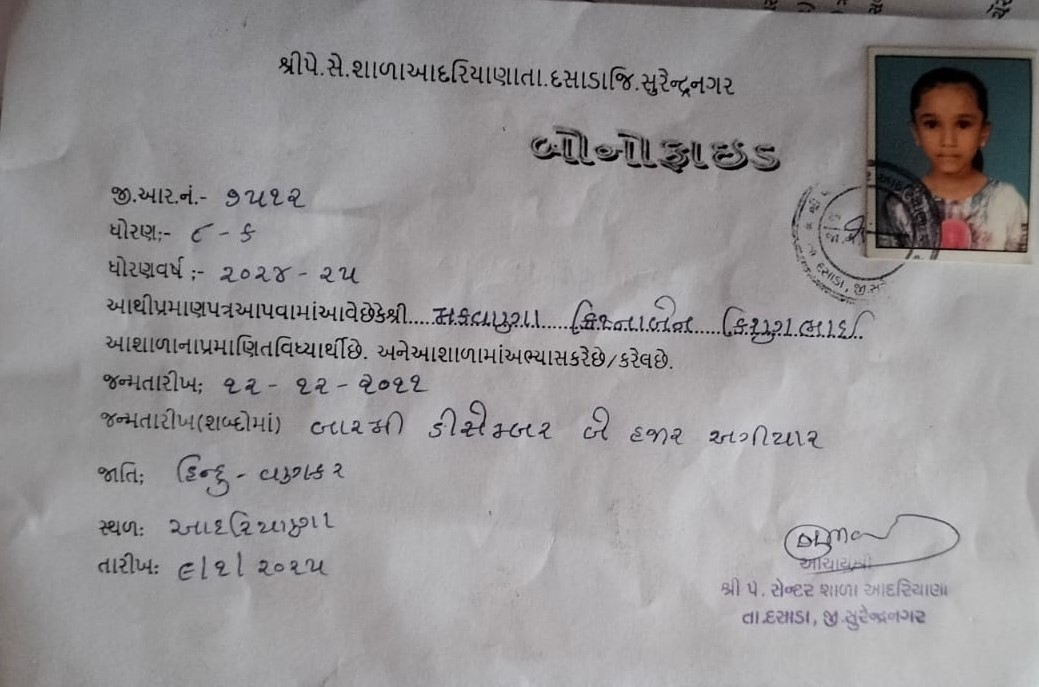 શ્રીપે.સે.શાળાઆદરિયાણાતા.દસાડાજિ.સુરેન્દ્રનગર
બોનોફાઇડ
જી.આર.નં.- ૭૫૧૨
ધોરણ:- ૮ - ક
ધોરણવર્ષ :- ૨૦૨૪ - ૨૫
આથીપ્રમાણપત્રઆપવામાંઆવેછેકેશ્રી....મકવાણા.....ક્રિષ્નાબેન....કિરણભાઈ.
આશાળાનાપ્રમાણિતવિધ્યાર્થીછે. અનેઆશાળામાંઅભ્યાસકરેછે/કરેલછે.
જન્મતારીખ; ૧૨ - ૧૨ - ૨૦૧૧
જન્મતારીખ(શબ્દોમાં) બારમી ડીસેમ્બર બે હજાર અગીયાર
જાતિ; હિન્દુ - વણકર
સ્થળ: આદરિયાણા
તારીખ: ૯/૧/૨૦૨૫
આચાર્યશ્રી
શ્રી પે. સેન્ટર શાળા આદરિયાણા
તા.દસાડા, જી.સુરેન્દ્રનગર